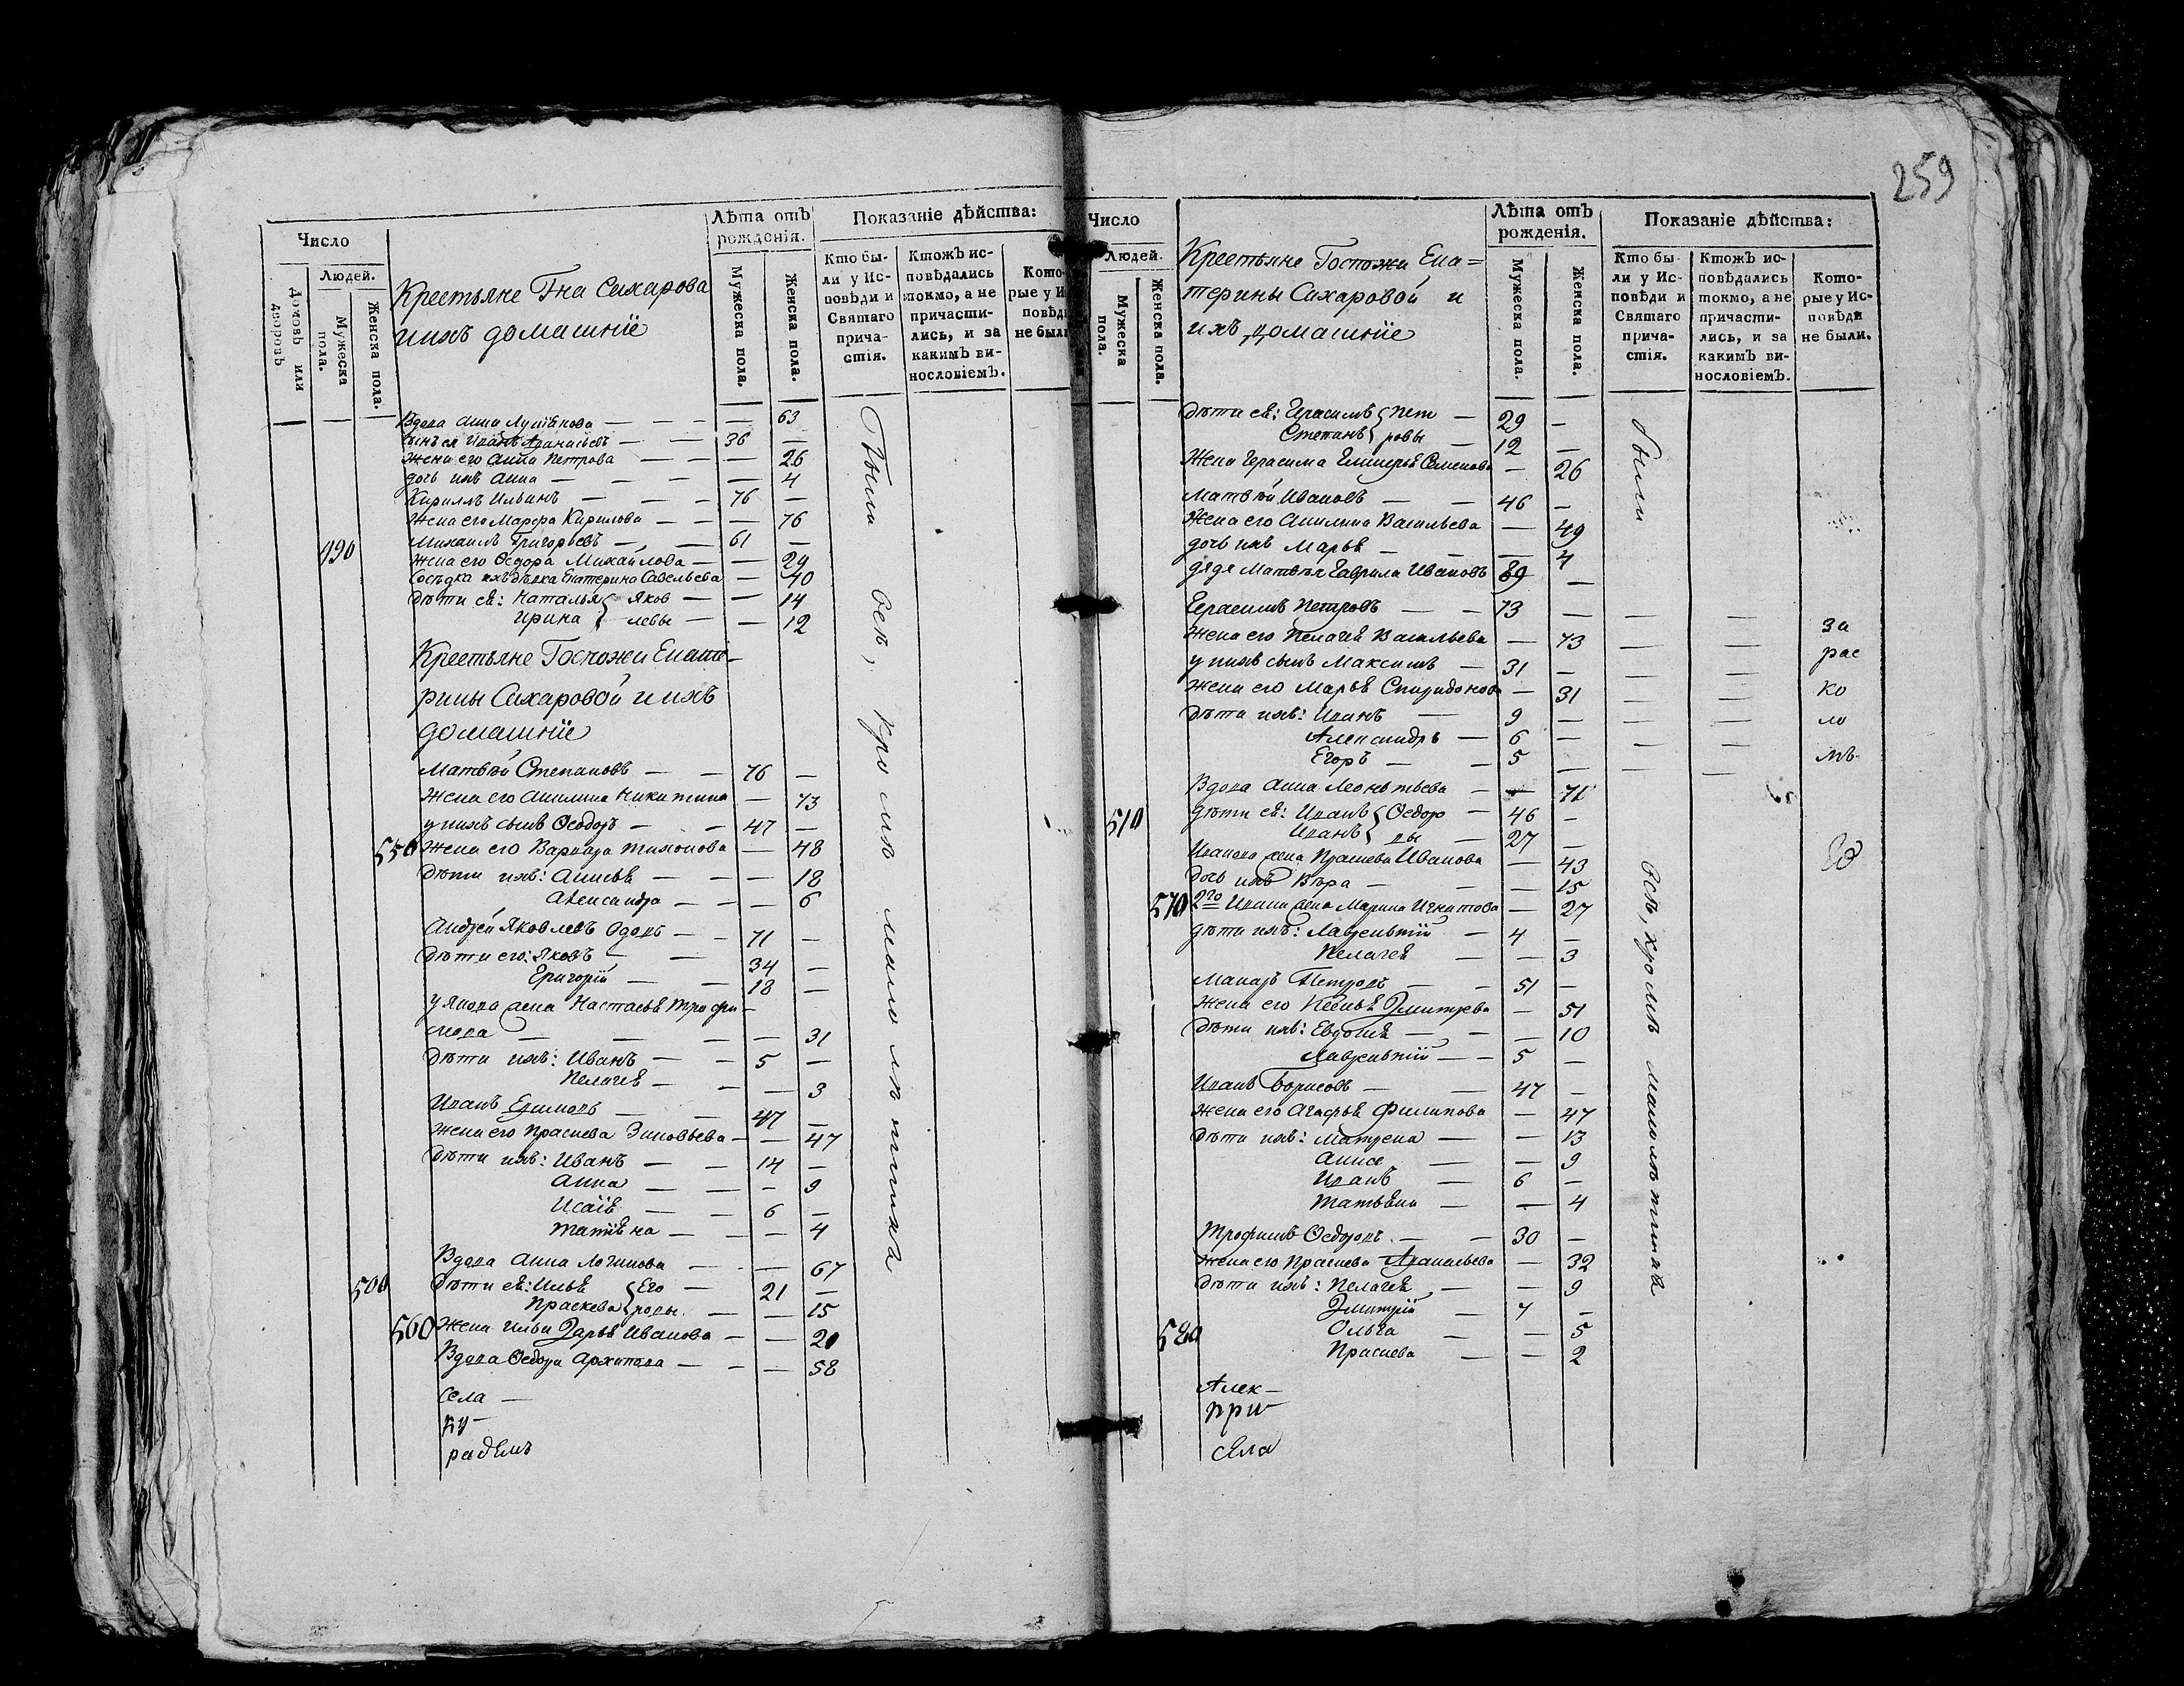 259
Число
Людей.
Домовъ или дворовъ
Мужеска пола.
Женска пола.
Крестьяне Гна Сахарова
и ихъ домашніе
Лѣта отъ рожденія.
Мужеска пола.
Женска пола.
Показаніе дѣйства:
Кто бы-
ли у Ис-
повѣди и
Святаго
прича-
стія.
Ктожъ ис-
повѣдались
токмо, а не
причасти-
лись, и за
какимъ ви-
нословіемъ.
Вдова Анна — 63
Сынъ ея Иванъ Аѳанасьевъ — 36 —
Жена его Анна Петрова — — 26
дочь ихъ Анна — — 4
Кирилъ Ильинъ — 76 —
Жена его Марѳа Кирилова — — 76
Михаилъ Григорьевъ — 61 —
490
Жена его Ѳедора Михайлова — — 29
Екатерина Савельева — 40
дѣти ея: Наталья Яков — — 14
Ирина левы — — 12
Крестьяне Госпожи Екате-
рины Сахаровой и ихъ
домашніе
Матвѣй Степановъ — 76 —
Жена его Акилина Никитина — 73
у нихъ сынъ Ѳеодоръ — 47 —
550 Жена его Варвара Тихонова — 48
дѣти ихъ: Анисья — — 18
Александра — — 6
Андрей Яковлевъ вдовъ — 71 —
дѣти его: Яковъ — 34 —
Григорій — 18 —
у Якова жена Настасья Трофи-
мова — — 31
дѣти ихъ: Иванъ — 5 —
Пелагея — — 3
Иванъ Ефимовъ — 47 —
Жена его Праскева Зиновьева — — 47
дѣти ихъ: Иванъ — 14 —
Анна — — 9
Исаія — 6 —
Татіана — — 4
Вдова Анна Логинова — — 67
500
дѣти ея: Илья Его — 21 —
Праскева ровы. — — 15
560 Жена Ильи Дарья Иванова — — 20
Вдова Ѳедора Архипова — — 58
села —
ку-
радымъ
были всѣ, кромѣ малолѣтнихъ
Число
Людей.
Мужеска пола.
Женска пола.
Крестьяне Госпожи Ека=
терины Сахаровой и
ихъ домашніе
Лѣта отъ рожденія.
Мужеска пола.
Женска пола.
Показаніе дѣйства:
Кто бы-
ли у Ис-
повѣди и
Святаго
прича-
стія.
Ктожъ ис-
повѣдались
токмо, а не
причасти-
лись, и за
какимъ ви-
нословіемъ.
Кото-
рые у Ис-
повѣди
не были.
дѣти ея: Герасимъ Пет — 29 —
Степанъ ровы — 12 —
Жена Герасима Гликерья Семенова — 26
Матвѣй Ивановъ — 46 —
Жена его Акилина Васильева — 49
дочь ихъ Марья — — 4
дядя Матвѣя Гаврила Ивановъ 69 —
Герасимъ Петровъ — 73 —
Жена его Пелагея Васильева — 73
у нихъ сынъ Максимъ — 31 —
Жена его Марья Спиридонова — 31
дѣти ихъ: Иванъ — 9 —
Александръ — 6 —
Егоръ — 5 —
за
рас
ко
ло
мъ
Вдова Анна Леонтьева — — 71
510
дѣти ея: Иванъ Ѳедор — 46 —
Иванъ вы — 27 —
Иванова жена Праскева Иванова — 43
дочь ихъ Вѣра — — 15
570 2го Ивана жена Марина Игнатова — 27
дѣти ихъ: Лаврентій — 4 —
Пелагея — — 3
Макаръ Петровъ — 51 —
Жена его Ксенья Дмитрева — 51
дѣти ихъ: Евдокия — — 10
Лаврентій — 5 —
Иванъ Борисовъ — 47 —
Жена его Агафья Филипова — 47
дѣти ихъ: Матрена — — 13
— 9
Иванъ — 6 —
Татьяна — — 4
Трофимъ Ѳедоровъ — 30 —
Жена его Праскева Аѳанасьева — 32
дѣти ихъ: Пелагея — — 9
Дмитрій — 7 —
520
Ольга — — 5
Праскева — — 2
Алек-
при-
села
были всѣ, кромѣ малолѣтнихъ